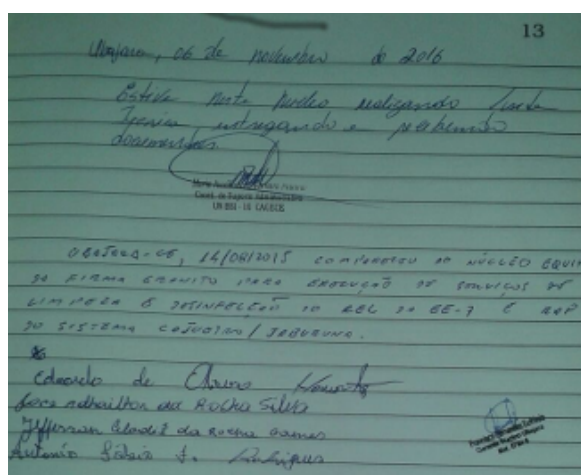 13
Ubajara, 06 de novembro de 2016
Estive neste núcleo realizando visita
Técnica entregando e recebendo
documentos.
UBAJARA-CE, 14/08/2015 COMPARECEU AO NÚCLEO EQUIPE
DA FIRMA GRANITO PARA EXECUÇÃO DE SERVIÇOS DE
LIMPEZA E DESINFECÇÃO DO REL DA EE-7 E RAP
DO SISTEMA CAJUEIRO / JABURUNA.
Eduardo de
Jose Adhailton da Rocha Silva
Jefferson Eladio da Rocha Gomes
Antonio Fábio F. Rodrigues